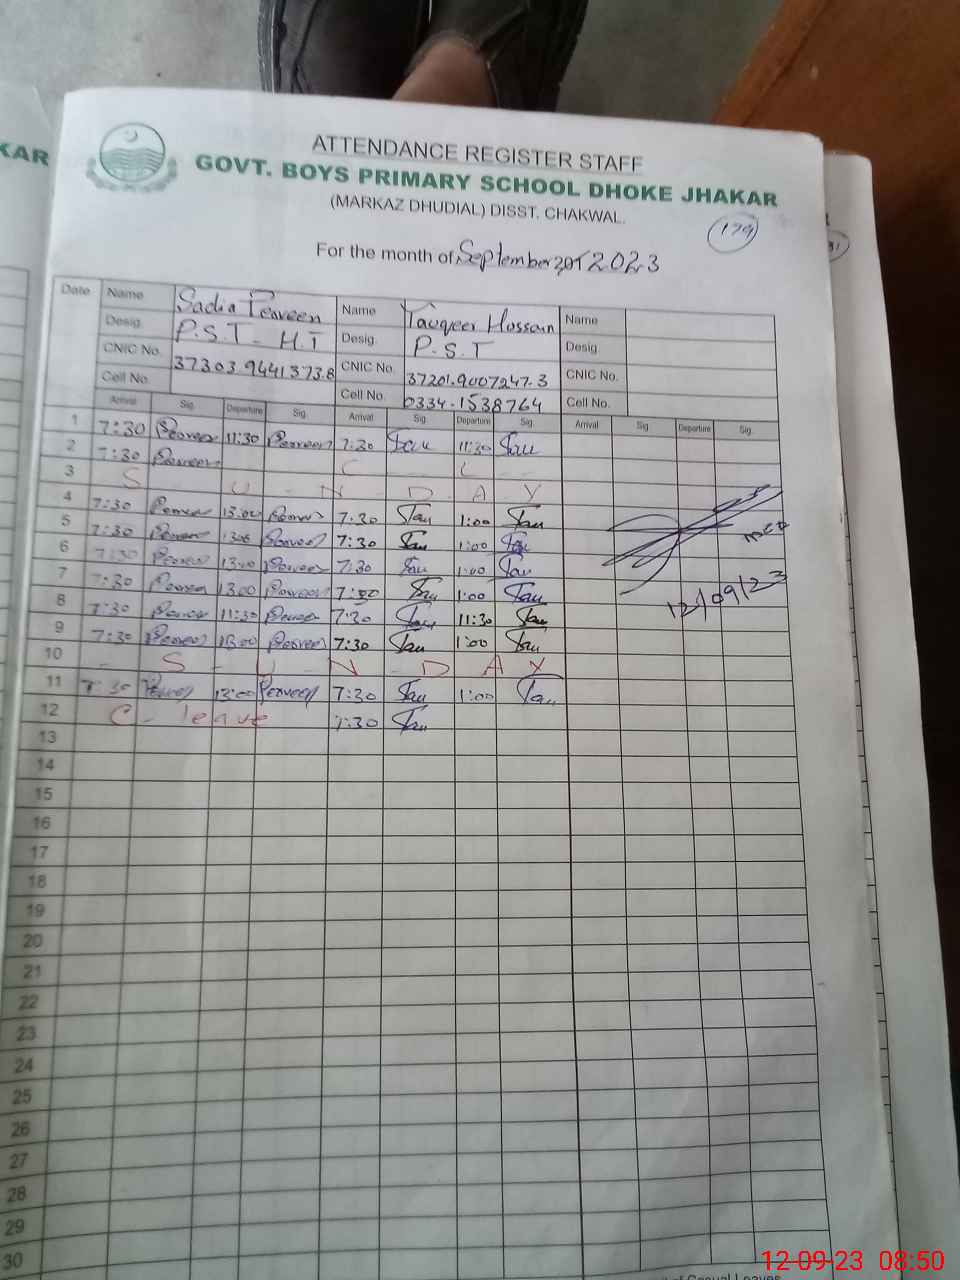 KAR
ATTENDANCE REGISTER STAFF
GOVT. BOYS PRIMARY SCHOOL DHOKE JHAKAR
(MARKAZ DHUDIAL) DISST. CHAKWAL.
179
For the month of September 201 2023
Date Name Sadia Perveen Name Tauqeer Hussain Name
Desig. P.S.T - H.T Desig. P.S.T Desig.
CNIC No. 37303 9441373.8 CNIC No. 37201.9007247-3 CNIC No.
Cell No. Cell No. 0334-1538764 Cell No.
Arrival Sig. Departure Sig. Arrival Sig. Departure Sig. Arrival Sig. Departure Sig.
1 7:30 Perveen 11:30 Perveen 7:30 11:30
2 7:30 Perveen C L
3 S U N D A Y
4 7:30 Perveen 13:00 Perveen 7:30 1:00
5 7:30 Perveen Perveen 7:30 1:00
6 7:30 Perveen 13:00 Perveen 7:30 1:00
7 7:30 Perveen 13:00 Perveen 7:30 1:00
8 7:30 Perveen 11:30 Perveen 7:30 11:30
9 7:30 Perveen 13:00 Perveen 7:30 1:00
10 S U N D A Y
11 7:30 Perveen 13:00 Perveen 7:30 1:00
12 C - leave 7:30
12/09/23
13
14
15
16
17
18
19
20
21
22
23
24
25
26
27
28
29
30
12-09-23 08:50
of Casual Leaves